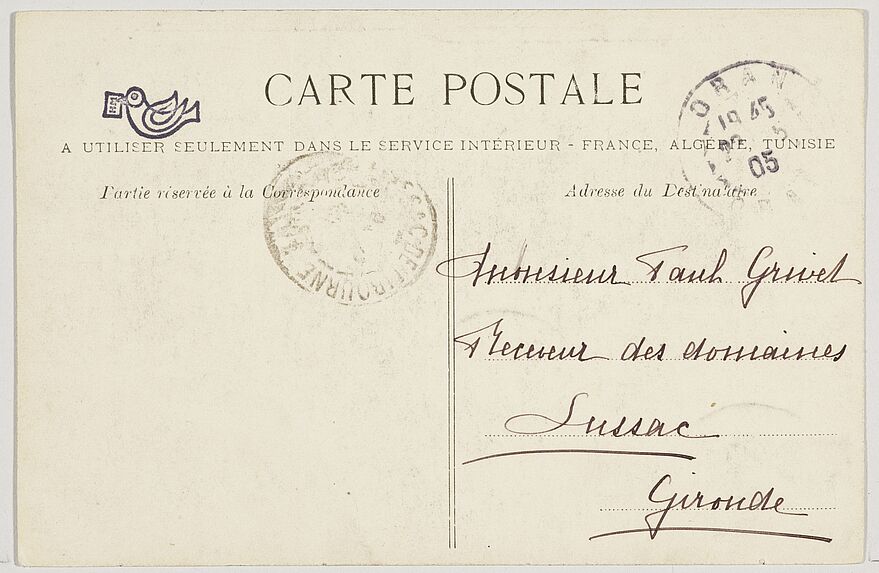 CARTE POSTALE
A UTILISER SEULEMENT DANS LE SERVICE INTÉRIEUR - FRANCE, ALGÉRIE, TUNISIE
Partie réservée à la Correspondance
Adresse du Destinataire
ORAN
05
Monsieur Paul Grivet
Receveur des domaines
Lussac
Gironde